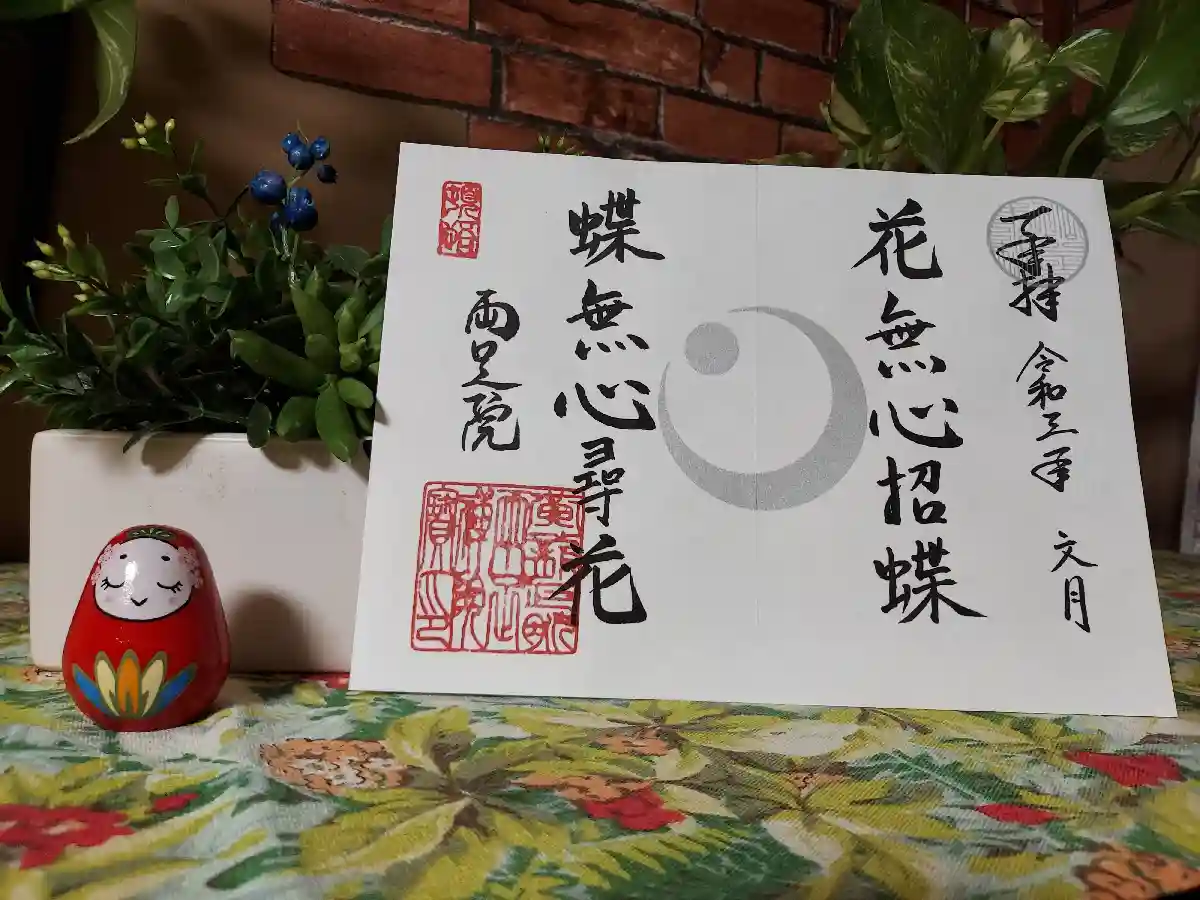 奉拝 令和三年 文月
花無心招蝶
蝶無心尋花
両足院